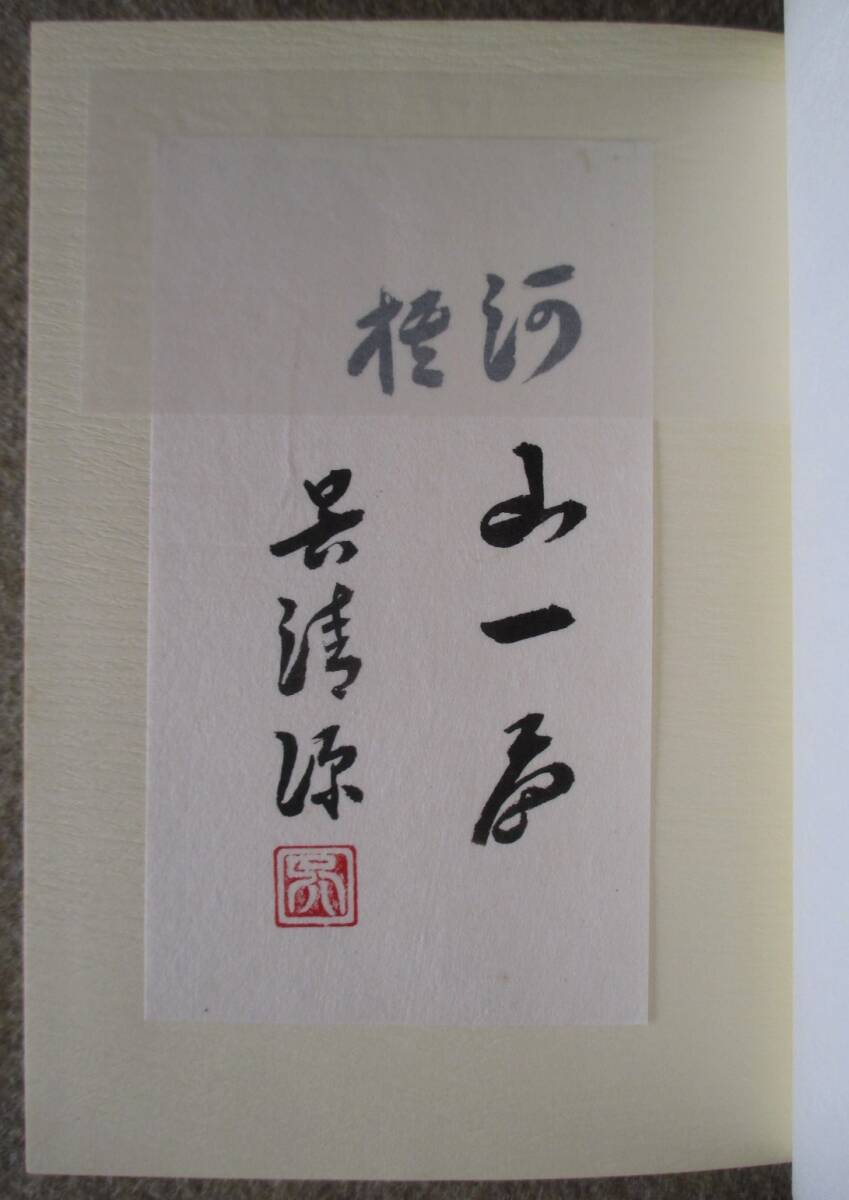 河山一局
棋
呉清源
呉